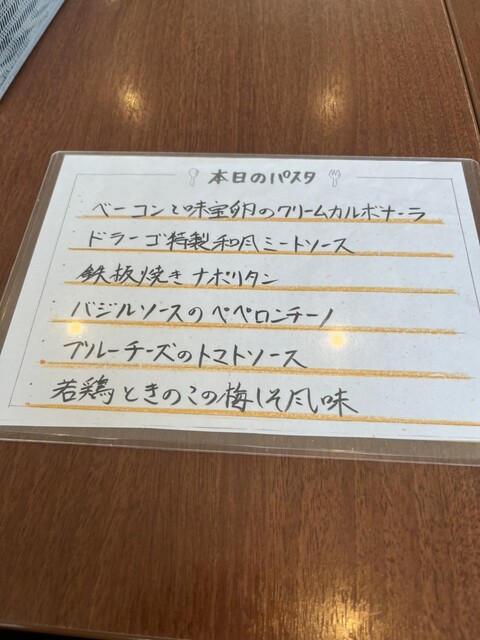 本日のパスタ
ベーコンと味宝卵のクリームカルボナーラ
ドラーゴ特製和風ミートソース
鉄板焼きナポリタン
バジルソースのペペロンチーノ
ブルーチーズのトマトソース
若鶏ときのこの梅しそ風味